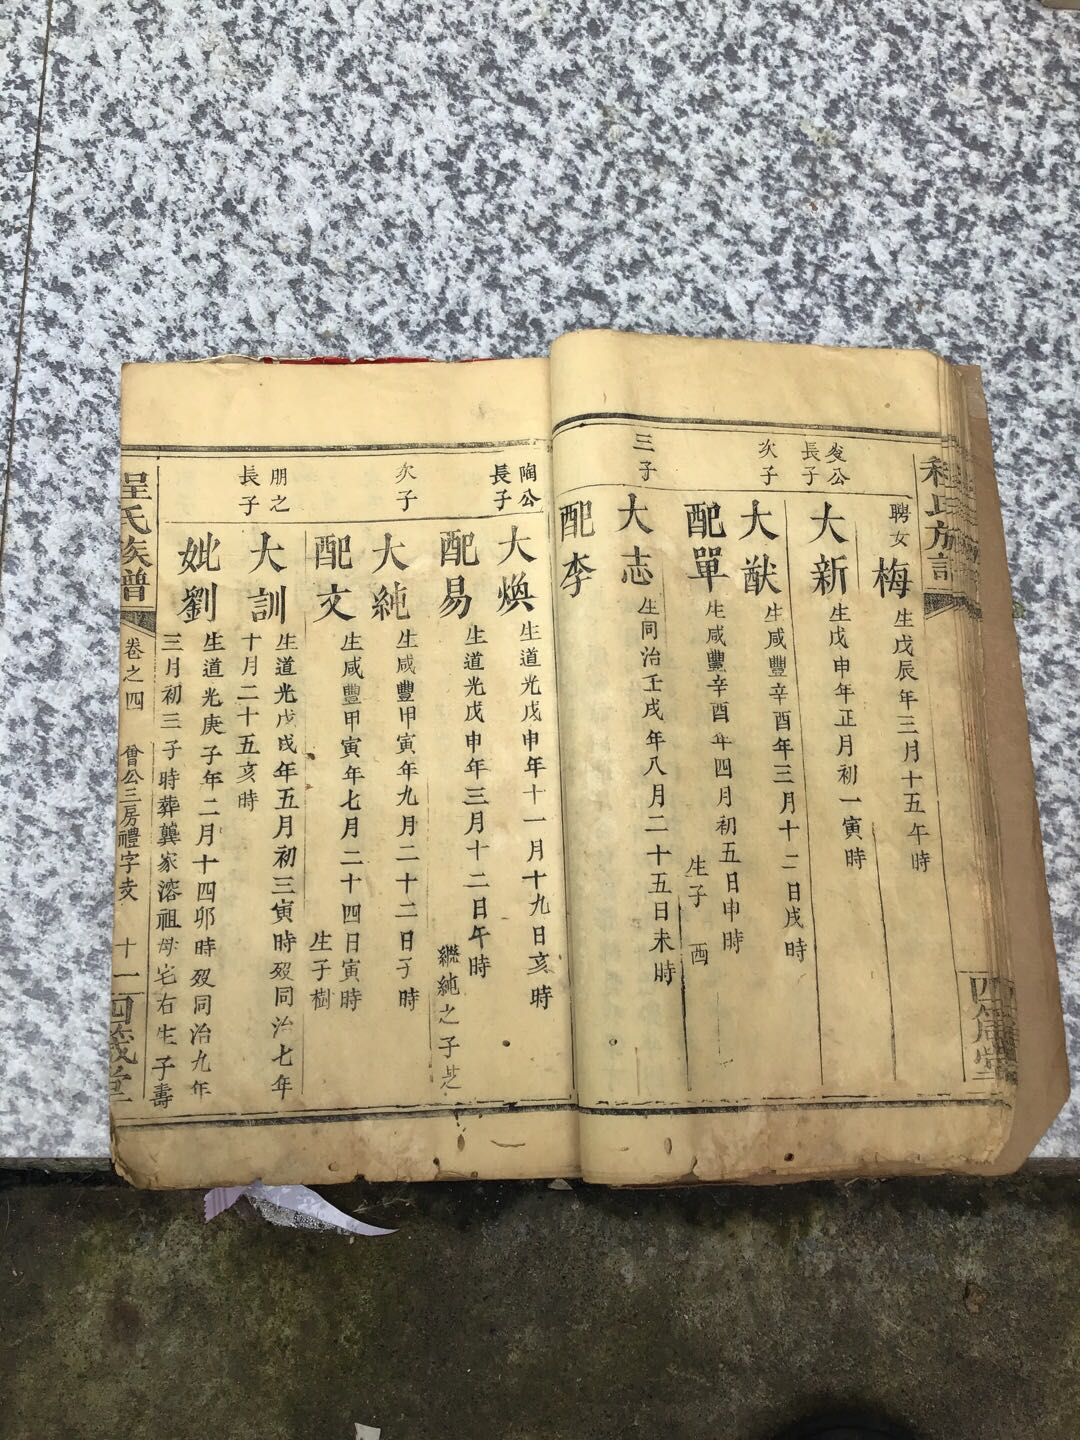 聘女
梅
生戊辰年三月十五午時
公
長子
大新
生戊申年正月初一寅時
次子
大猷
生咸豐辛酉年三月十二日戌時
配單
生咸豐辛酉年四月初五日申時
生子 酉
三子
大志
生同治壬戌年八月二十五日未時
配李
陶公
長子
大煥
生道光戊申年十一月十九日亥時
配易
生道光戊申年三月十二日午時
繼純之子芝
次子
大純
生咸豐甲寅年九月二十二日子時
配文
生咸豐甲寅年七月二十四日寅時
生子樹
朋之
長子
大訓
生道光戊戌年五月初三寅時歿同治七年
十月二十五亥時
妣劉
生道光庚子年二月十四卯時歿同治九年
三月初三子時葬龔家溶祖母宅右生子壽
程氏族譜
卷之四
曾公三房禮字支
十一
四箴堂